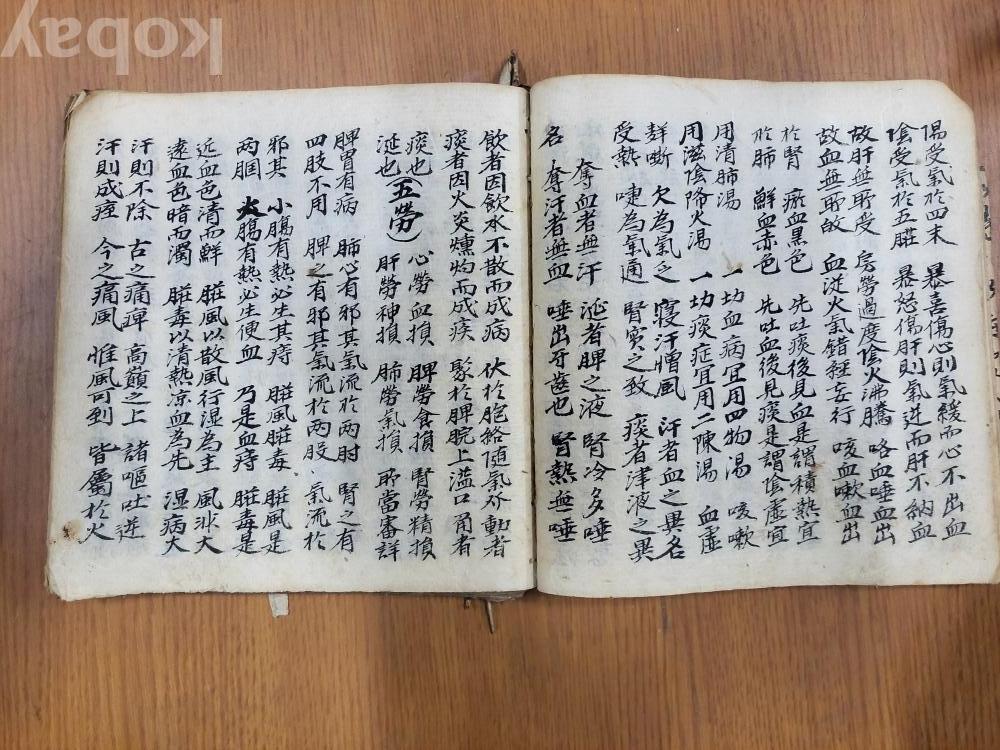 傷受氣於四末　暴喜傷心則氣緩而心不出血
陰受氣於五臟　暴怒傷肝則氣逆而肝不納血
故肝無所受　房勞過度陰火沸騰　咯血唾血出
故血無所歇　血從火氣錯經妄行　咳血嗽血出
於腎　瘀血黑色　先吐痰後見血是謂積熱宜
於肺　鮮血赤色　先吐血後見痰是謂陰虛宜
用清肺湯　一切血病宜用四物湯　咳嗽
用滋陰降火湯　一切痰症宜用二陳湯　血虛
嘶　欠為氣乏　寢汗憎風　汗者血之異名
受熱　嚏為氣通　腎實之致　痰者津液之異
奪血者無汗　涎者脾之液　腎冷多唾
名　奪汗者無血　唾出牙齒也　腎熱無唾
飲者因飲水不散而成病　伏於胞絡隨氣升動者
痰者因火炎燻灼而成疾　聚於脾脘上溢口角者
痰也（五勞）　心勞血損　脾勞食損　腎勞精損
涎也　肝勞神損　肺勞氣損　所當審詳
脾胃有病　肺心有邪其氣流於兩肘　腎之有
四肢不用　脾之有邪其氣流於兩股　氣流於
邪其　小膓有熱必生其痔　臟風臟毒　臟風是
兩膕　大膓有熱必生便血　乃是血痔　臟毒是
近血色清而鮮　臟風以散風行湿為主　風氷大
遠血色暗而濁　臟毒以清熱涼血為先　湿病大
汗則不除　古之痛痺　高巔之上　諸嘔吐逆
汗則成痙　今之痛風　惟風可到　皆屬於火
kobay